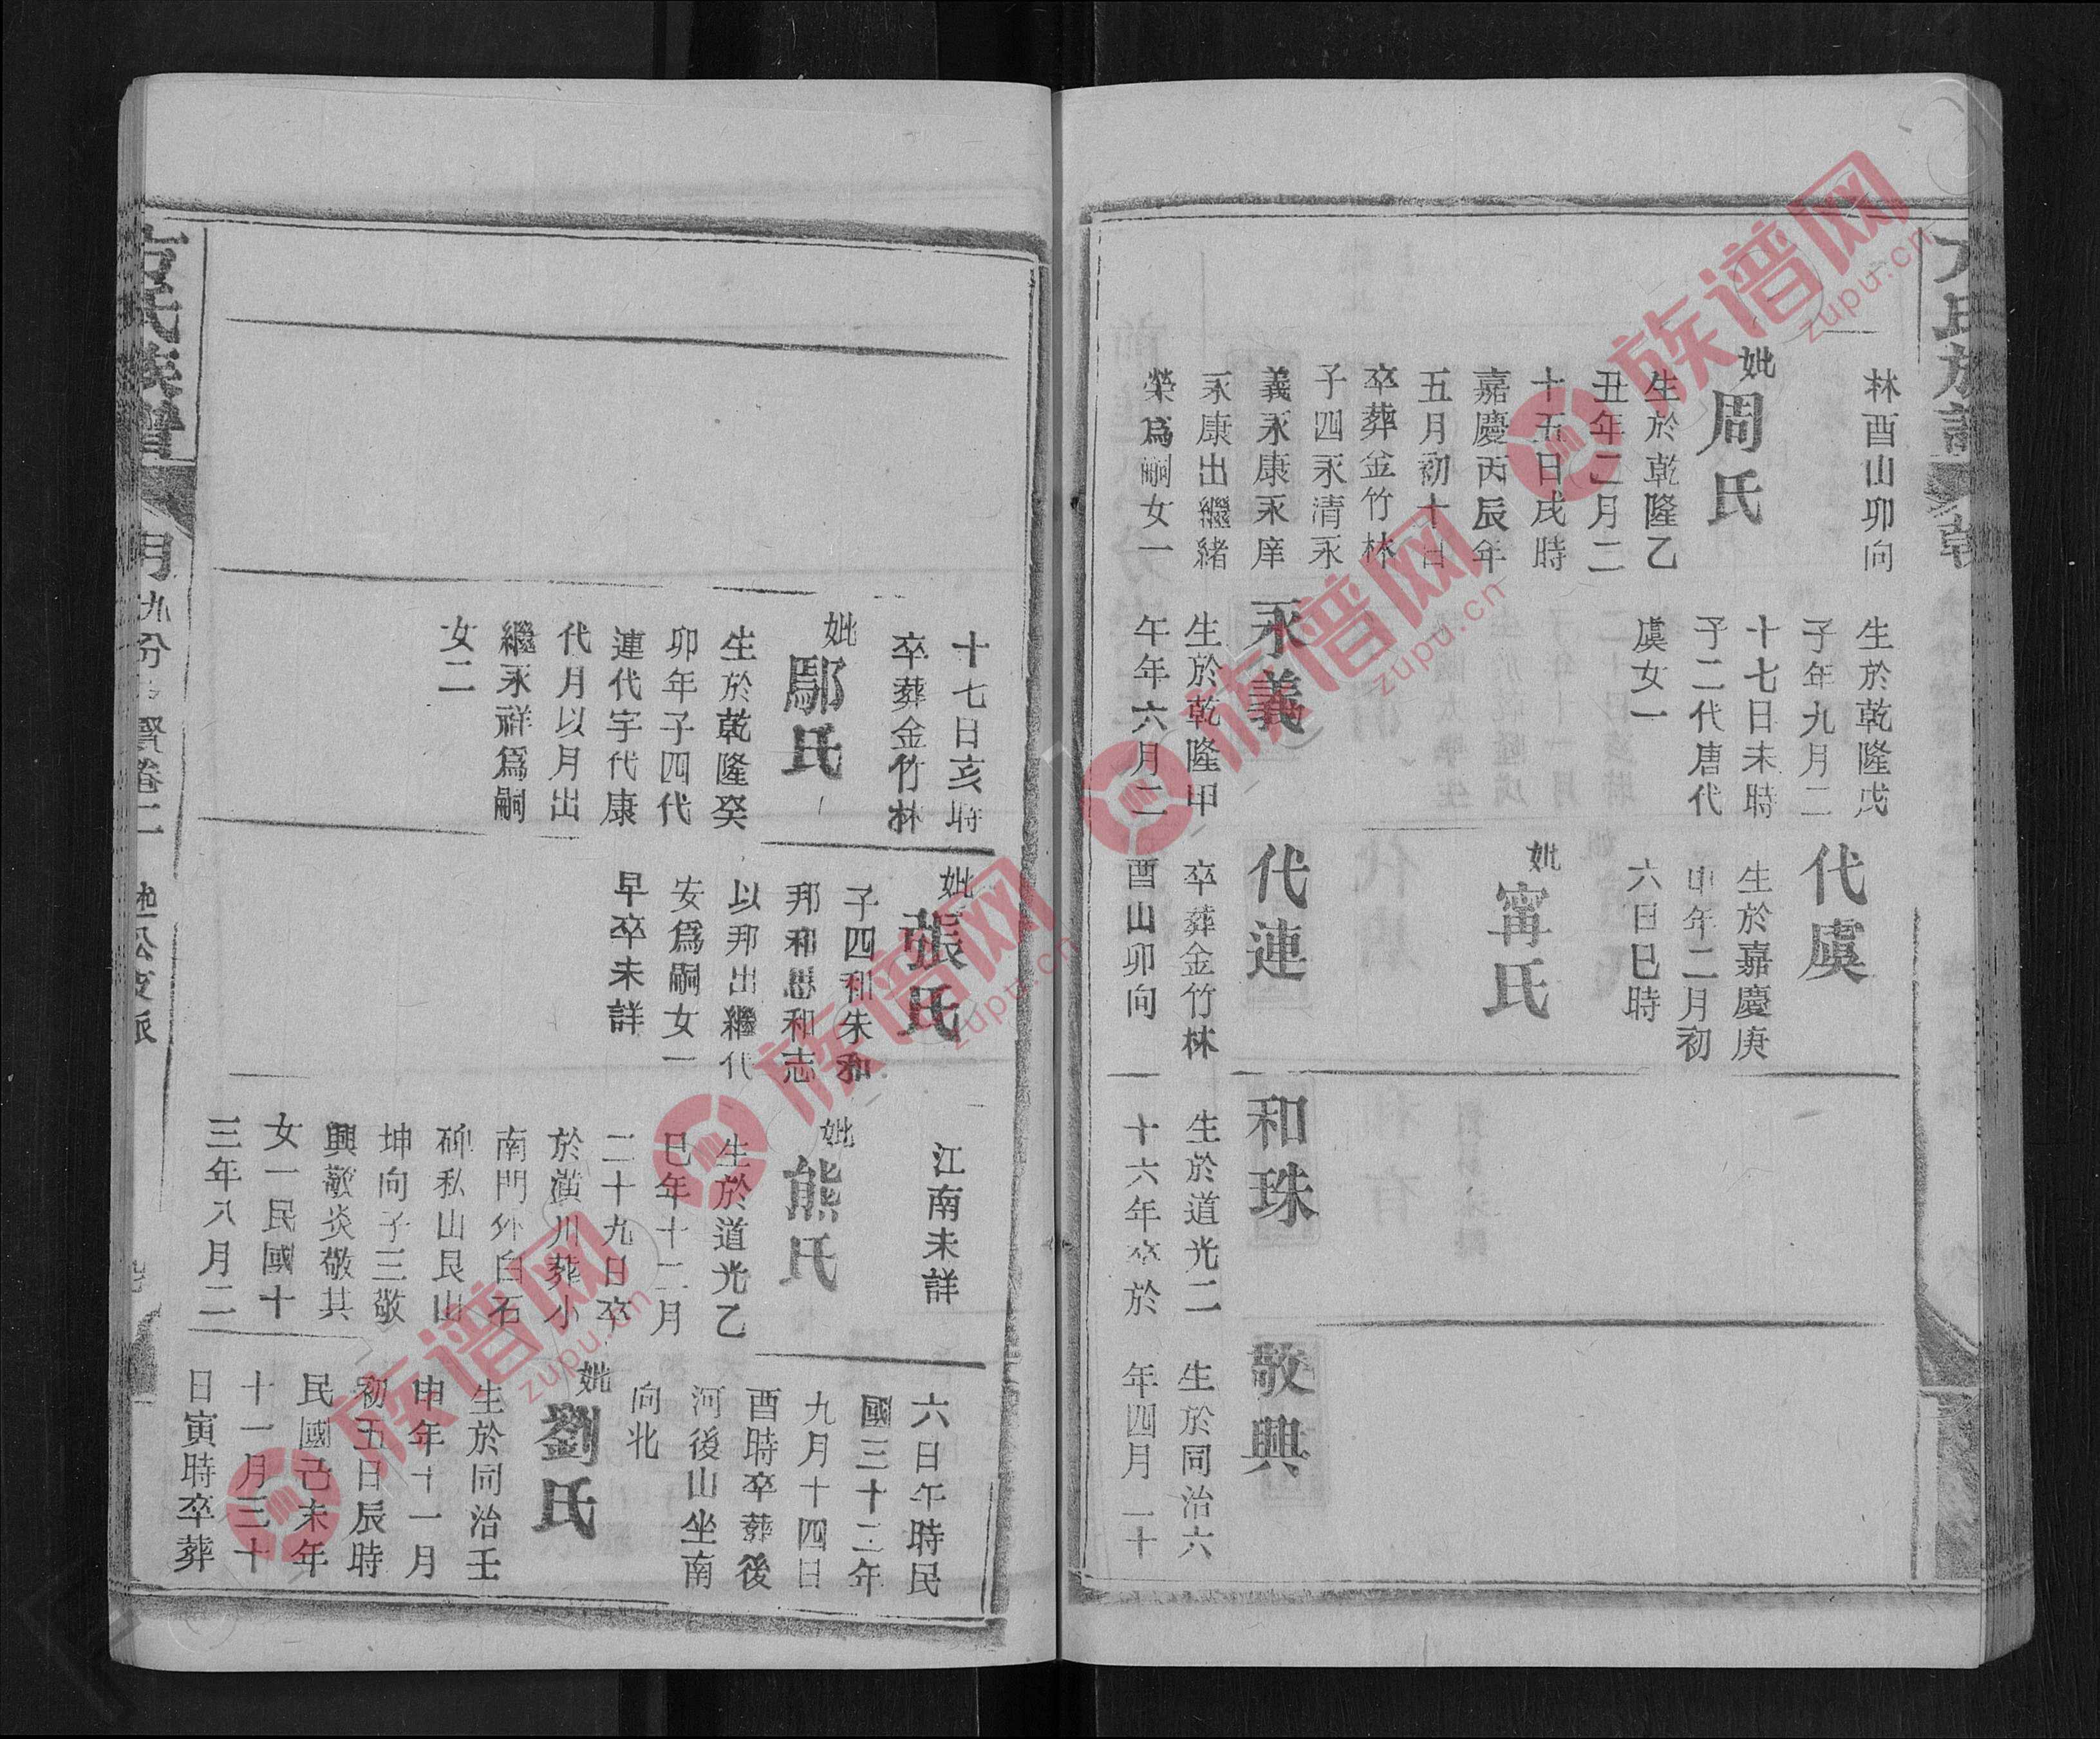 方氏族譜
林酉山卯向
妣周氏
生於乾隆乙
丑年二月二
十五日戌時
嘉慶丙辰年
五月初十日
卒葬金竹林
子四永清永
義永康永庠
永康出繼緒
榮爲嗣女一
生於乾隆戊
子年九月二
十七日未時
子二代唐代
虞女一
永義
生於乾隆甲
午年六月二
代虞
生於嘉慶庚
申年二月初
六日巳時
妣甯氏
代連
卒葬金竹林
酉山卯向
和珠
生於道光二
十六年卒於
敬興
生於同治六
年四月二十
十七日亥時
卒葬金竹林
妣鄢氏
生於乾隆癸
卯年子四代
連代宇代康
代月以月出
繼永祥爲嗣
女二
妣張氏
子四和朱和
邦和思和志
以邦出繼代
安爲嗣女一
早卒未詳
江南未詳
妣熊氏
生於道光乙
巳年十二月
二十九日卒
於潢川葬小
南門外白石
碑私山艮山
坤向子三敬
興敬炎敬其
女一民國十
三年八月二
六日午時民
國三十二年
九月十四日
酉時卒葬後
河後山坐南
向北
妣劉氏
生於同治壬
申年十一月
初五日辰時
民國己未年
十一月三十
日寅時卒葬
方氏族譜
月
卷二
族谱网
zupu.cn
族谱网
zupu.cn
族谱网
zupu.cn
族谱网
zupu.cn